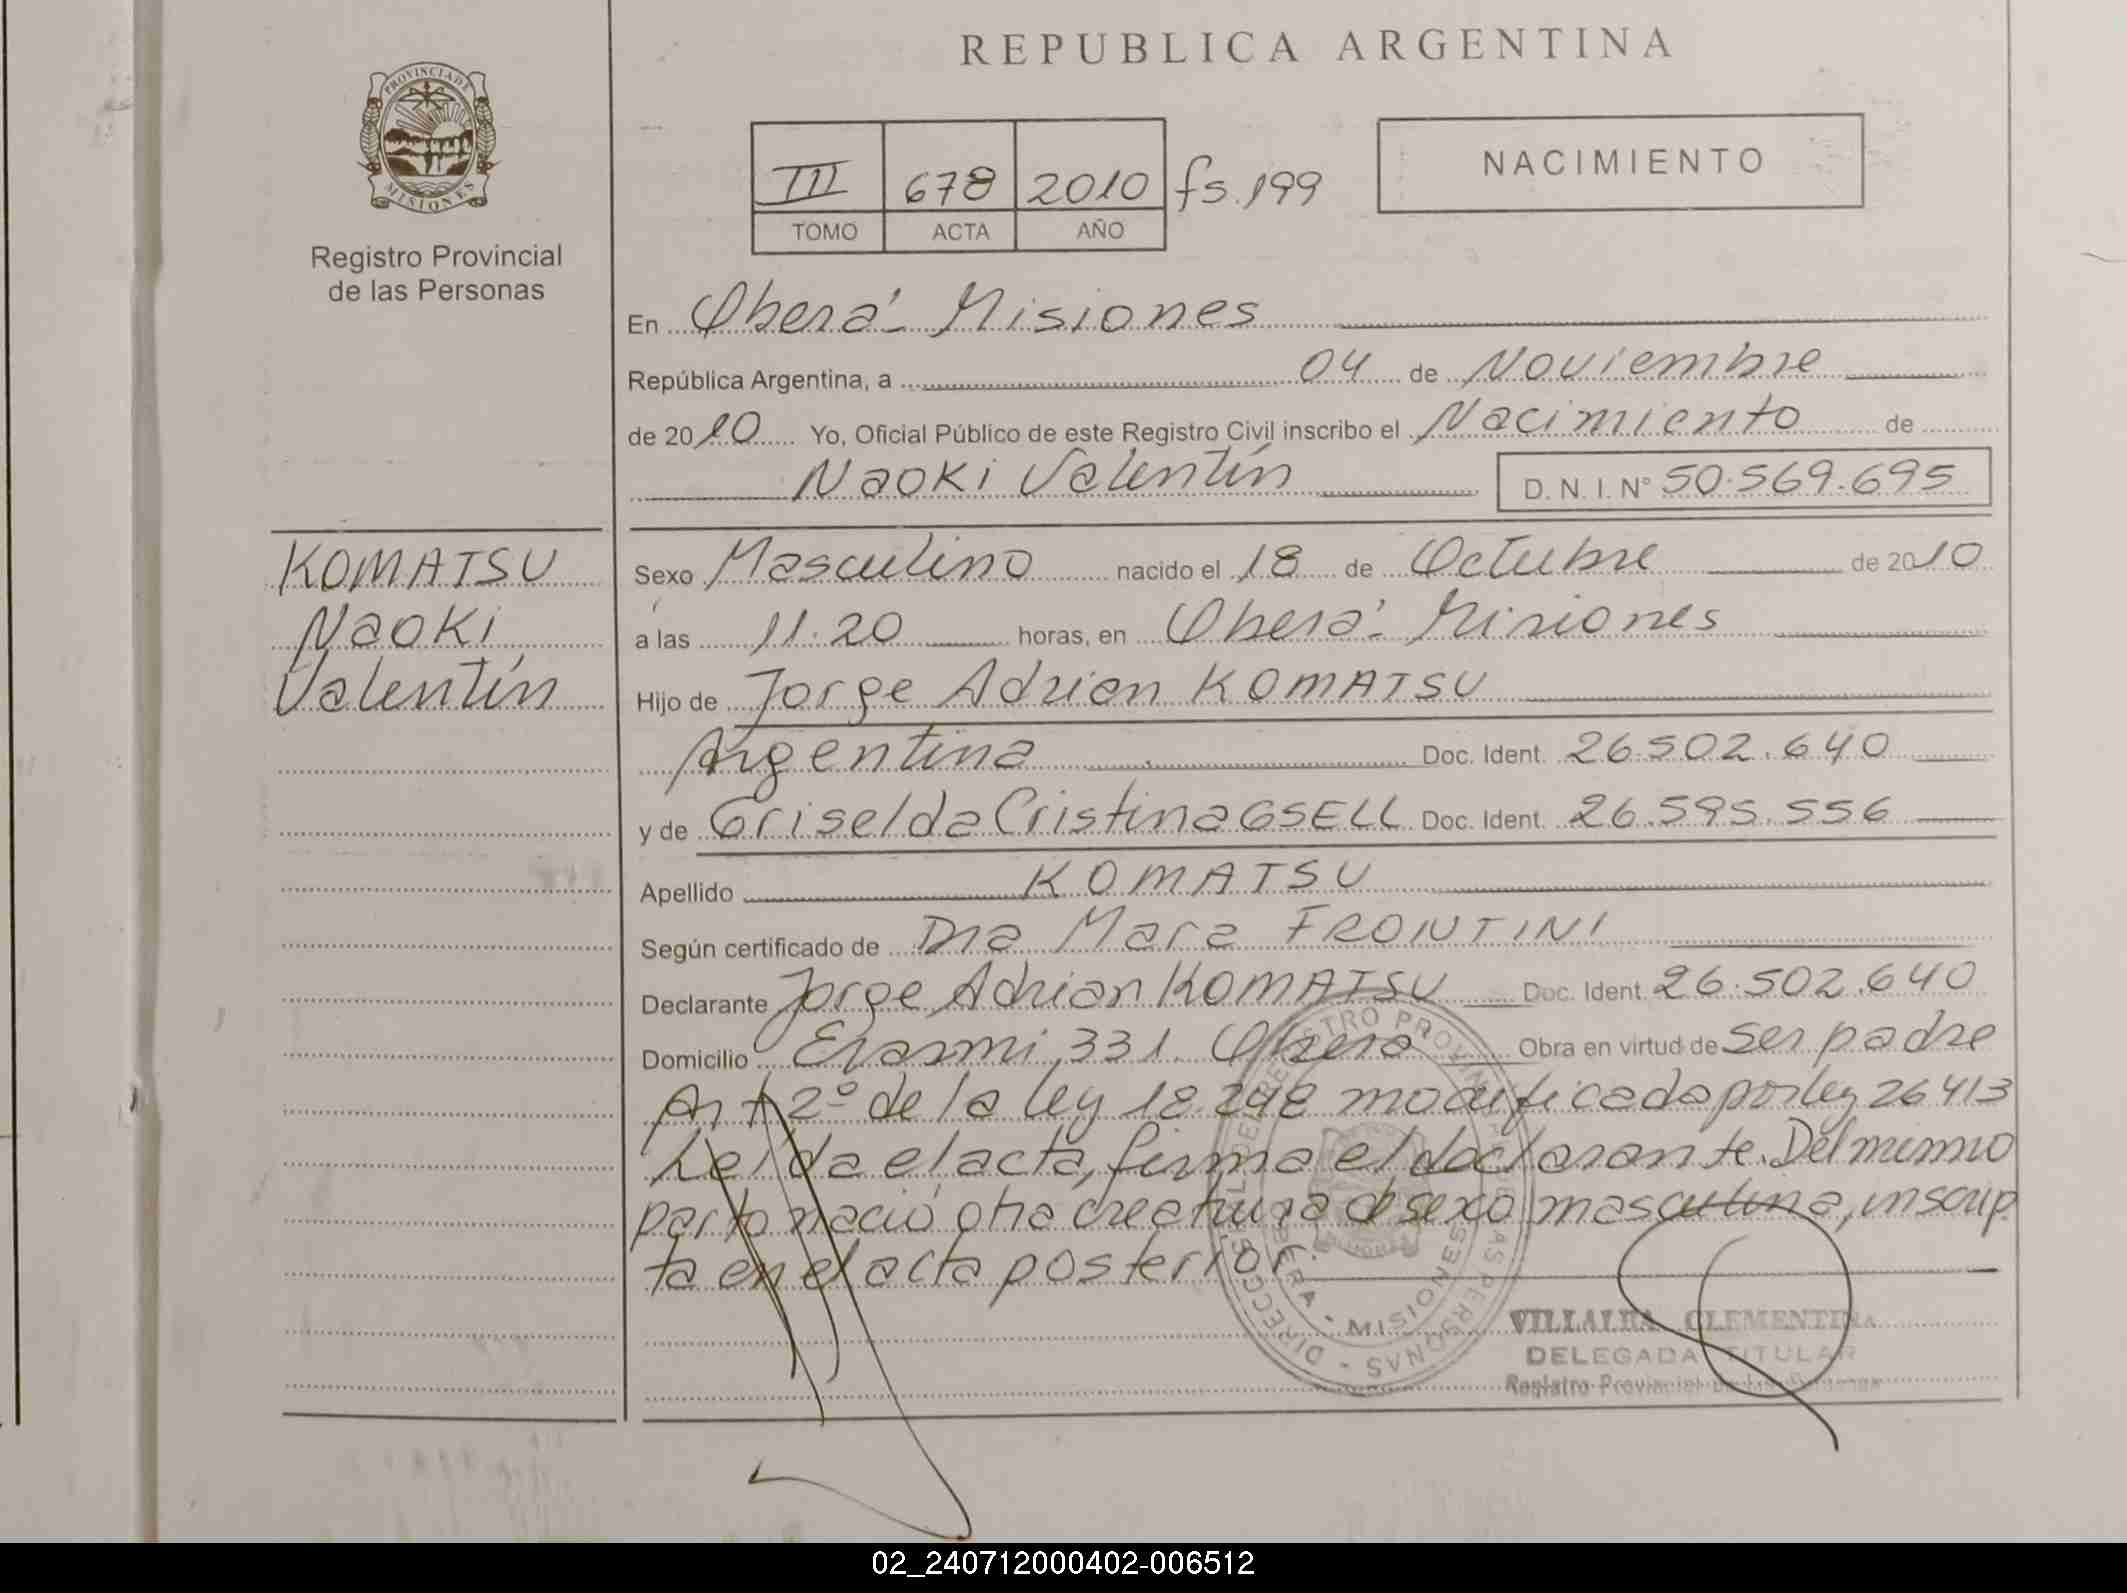 REPUBLICA ARGENTINA
PROVINCIA DE MISIONES
Registro Provincial
de las Personas
III 678 2010 fs. 199
TOMO ACTA AÑO
NACIMIENTO
En Oberá - Misiones
República Argentina, a 04 de Noviembre
de 2010 Yo, Oficial Público de este Registro Civil inscribo el Nacimiento de
Naoki Valentín D. N. I. Nº 50.569.695
KOMATSU
Naoki
Valentín
Sexo Masculino nacido el 18 de Octubre de 2010
a las 11.20 horas, en Oberá - Misiones
Hijo de Jorge Adrian KOMATSU
Argentina Doc. Ident. 26.502.640
y de Griselda Cristina GSELL Doc. Ident. 26.595.556
Apellido KOMATSU
Según certificado de Dra Mara FRONTINI
Declarante Jorge Adrian KOMATSU Doc. Ident. 26.502.640
Domicilio 331 Oberá Obra en virtud de ser padre
Art 2º de la ley 18.248 modificada por ley 26413
Leída el acta, firma el declarante. Del mismo
parto nació otra creatura d sexo masculina, inscrip
ta en el acta posterior.
VILLALBA CLEMENTINA
DELEGADA TITULAR
Registro Provincial de las Personas
02_240712000402-006512